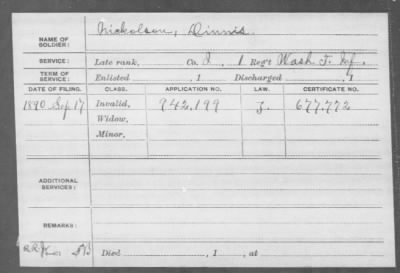 NAME OF SOLDIER: Nickolson, Dinnis.
SERVICE: Late rank, Co. I, 1 Reg't Wash T. Inf.
TERM OF SERVICE: Enlisted , 1 Discharged , 1
DATE OF FILING. CLASS. APPLICATION NO. LAW. CERTIFICATE NO.
1890 Sep 17 Invalid, 942,199 J. 677,772
Widow,
Minor,
ADDITIONAL SERVICES:
REMARKS:
Died , 1 , at